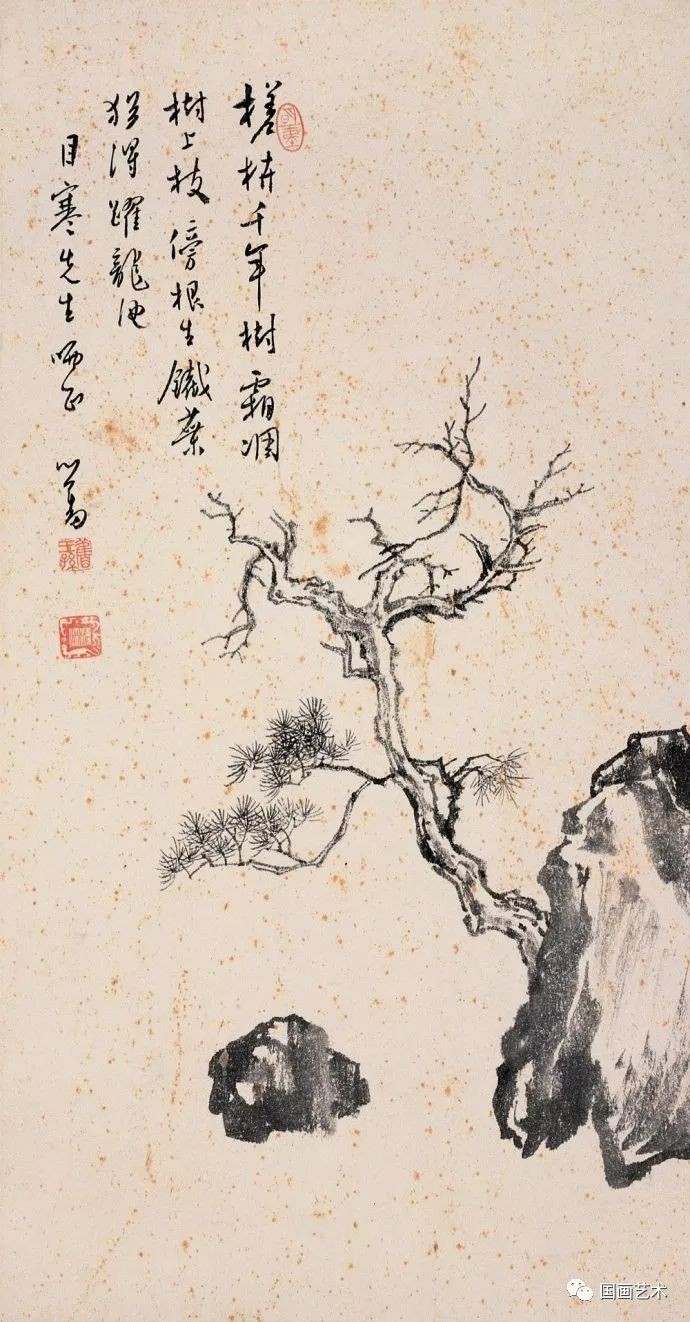 槎枿千年樹霜凋
樹上枝傍根生鐵葉
猶得躍龍池
目寒先生哂正 心畬
國画艺术